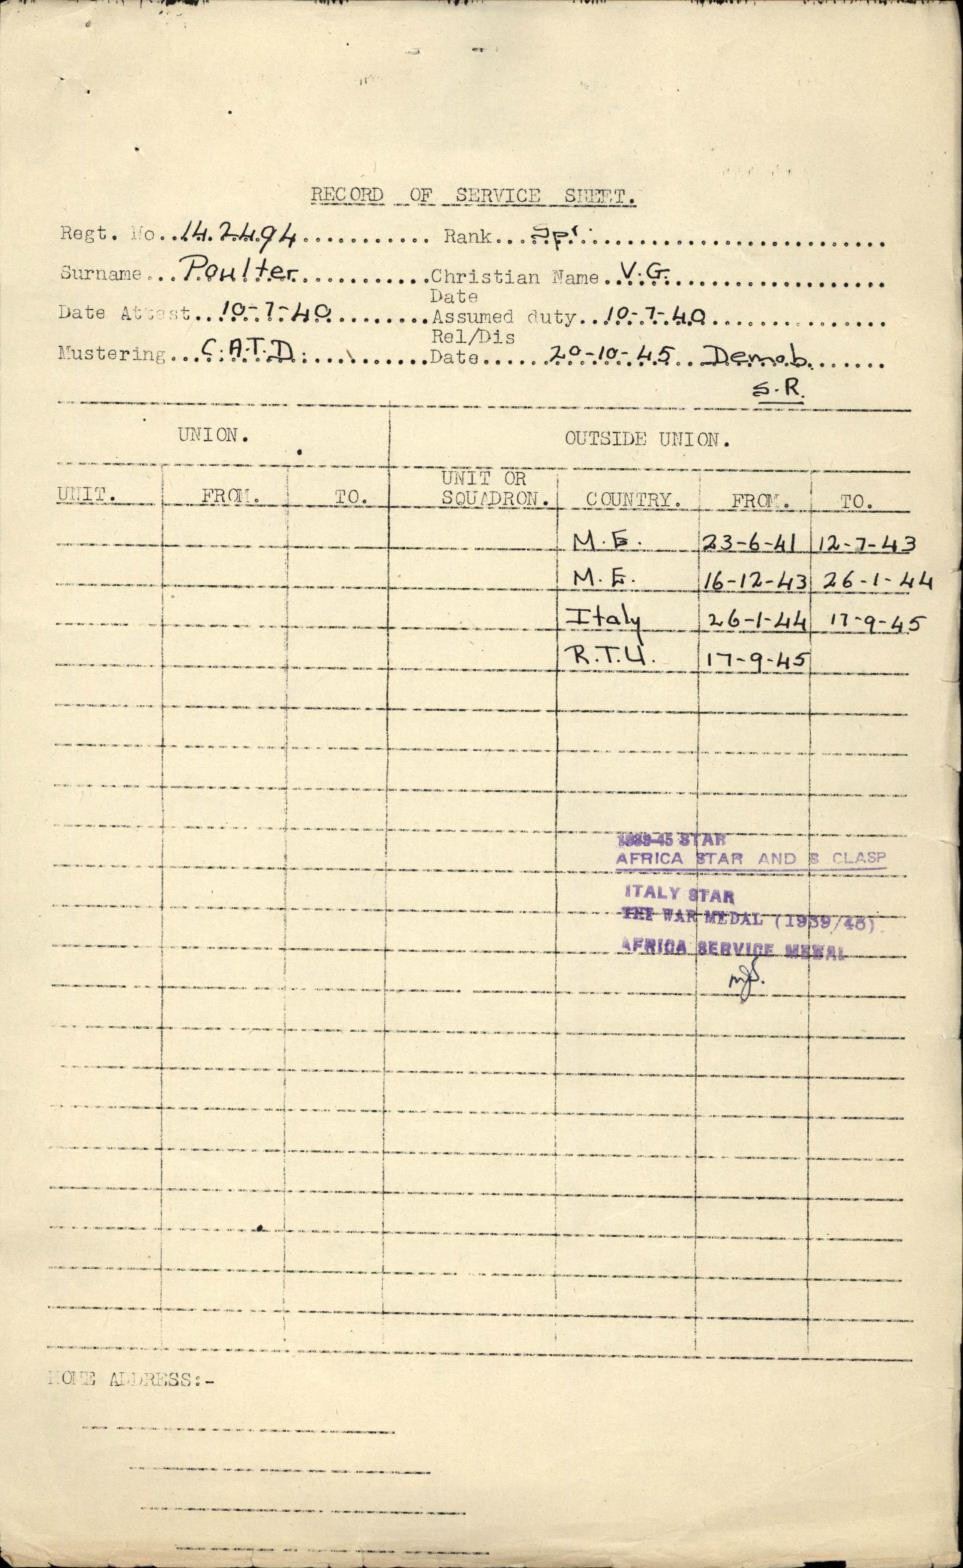 RECORD OF SERVICE SHEET.
Regt. No. 142494 Rank Spr.
Surname Poulter Christian Name V.G.
Date
Date Attest 10-7-40 Assumed duty 10-7-40
Rel/Dis
Mustering C.A.T.D. Date 20-10-45 Demob.
S.R.
UNION. OUTSIDE UNION.
UNIT. FROM. TO. UNIT OR SQUADRON. COUNTRY. FROM. TO.
M.E. 23-6-41 12-7-43
M.E. 16-12-43 26-1-44
Italy 26-1-44 17-9-45
R.T.U. 17-9-45
1939-45 STAR
AFRICA STAR AND 8 CLASP
ITALY STAR
THE WAR MEDAL (1939/45)
AFRICA SERVICE MEDAL
HOME ADDRESS:-